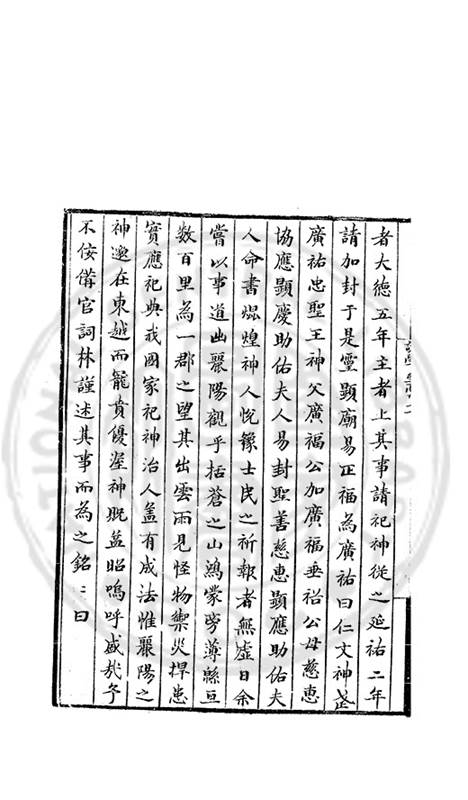 者大德五年主者上其事請祀神從之延祐二年
請加封于是靈顯廟易正福為廣祐曰仁文神武
廣祐忠聖王神父廣福公加廣福垂裕公母慈惠
協應顯慶助佑夫人易封聖善慈惠顯應助佑夫
人命書焜煌神人悅豫士民之祈報者無虛日余
嘗以事道出麗陽觀乎括蒼之山鴻蒙旁薄緜亘
数百里為一郡之望其出雲雨見怪物禦災捍患
實應祀典我國家祀神治人盖有成法惟麗陽之
神邈在東越而寵賁優渥神貺益昭嗚呼盛哉予
不佞備官詞林謹述其事而為之銘〻曰